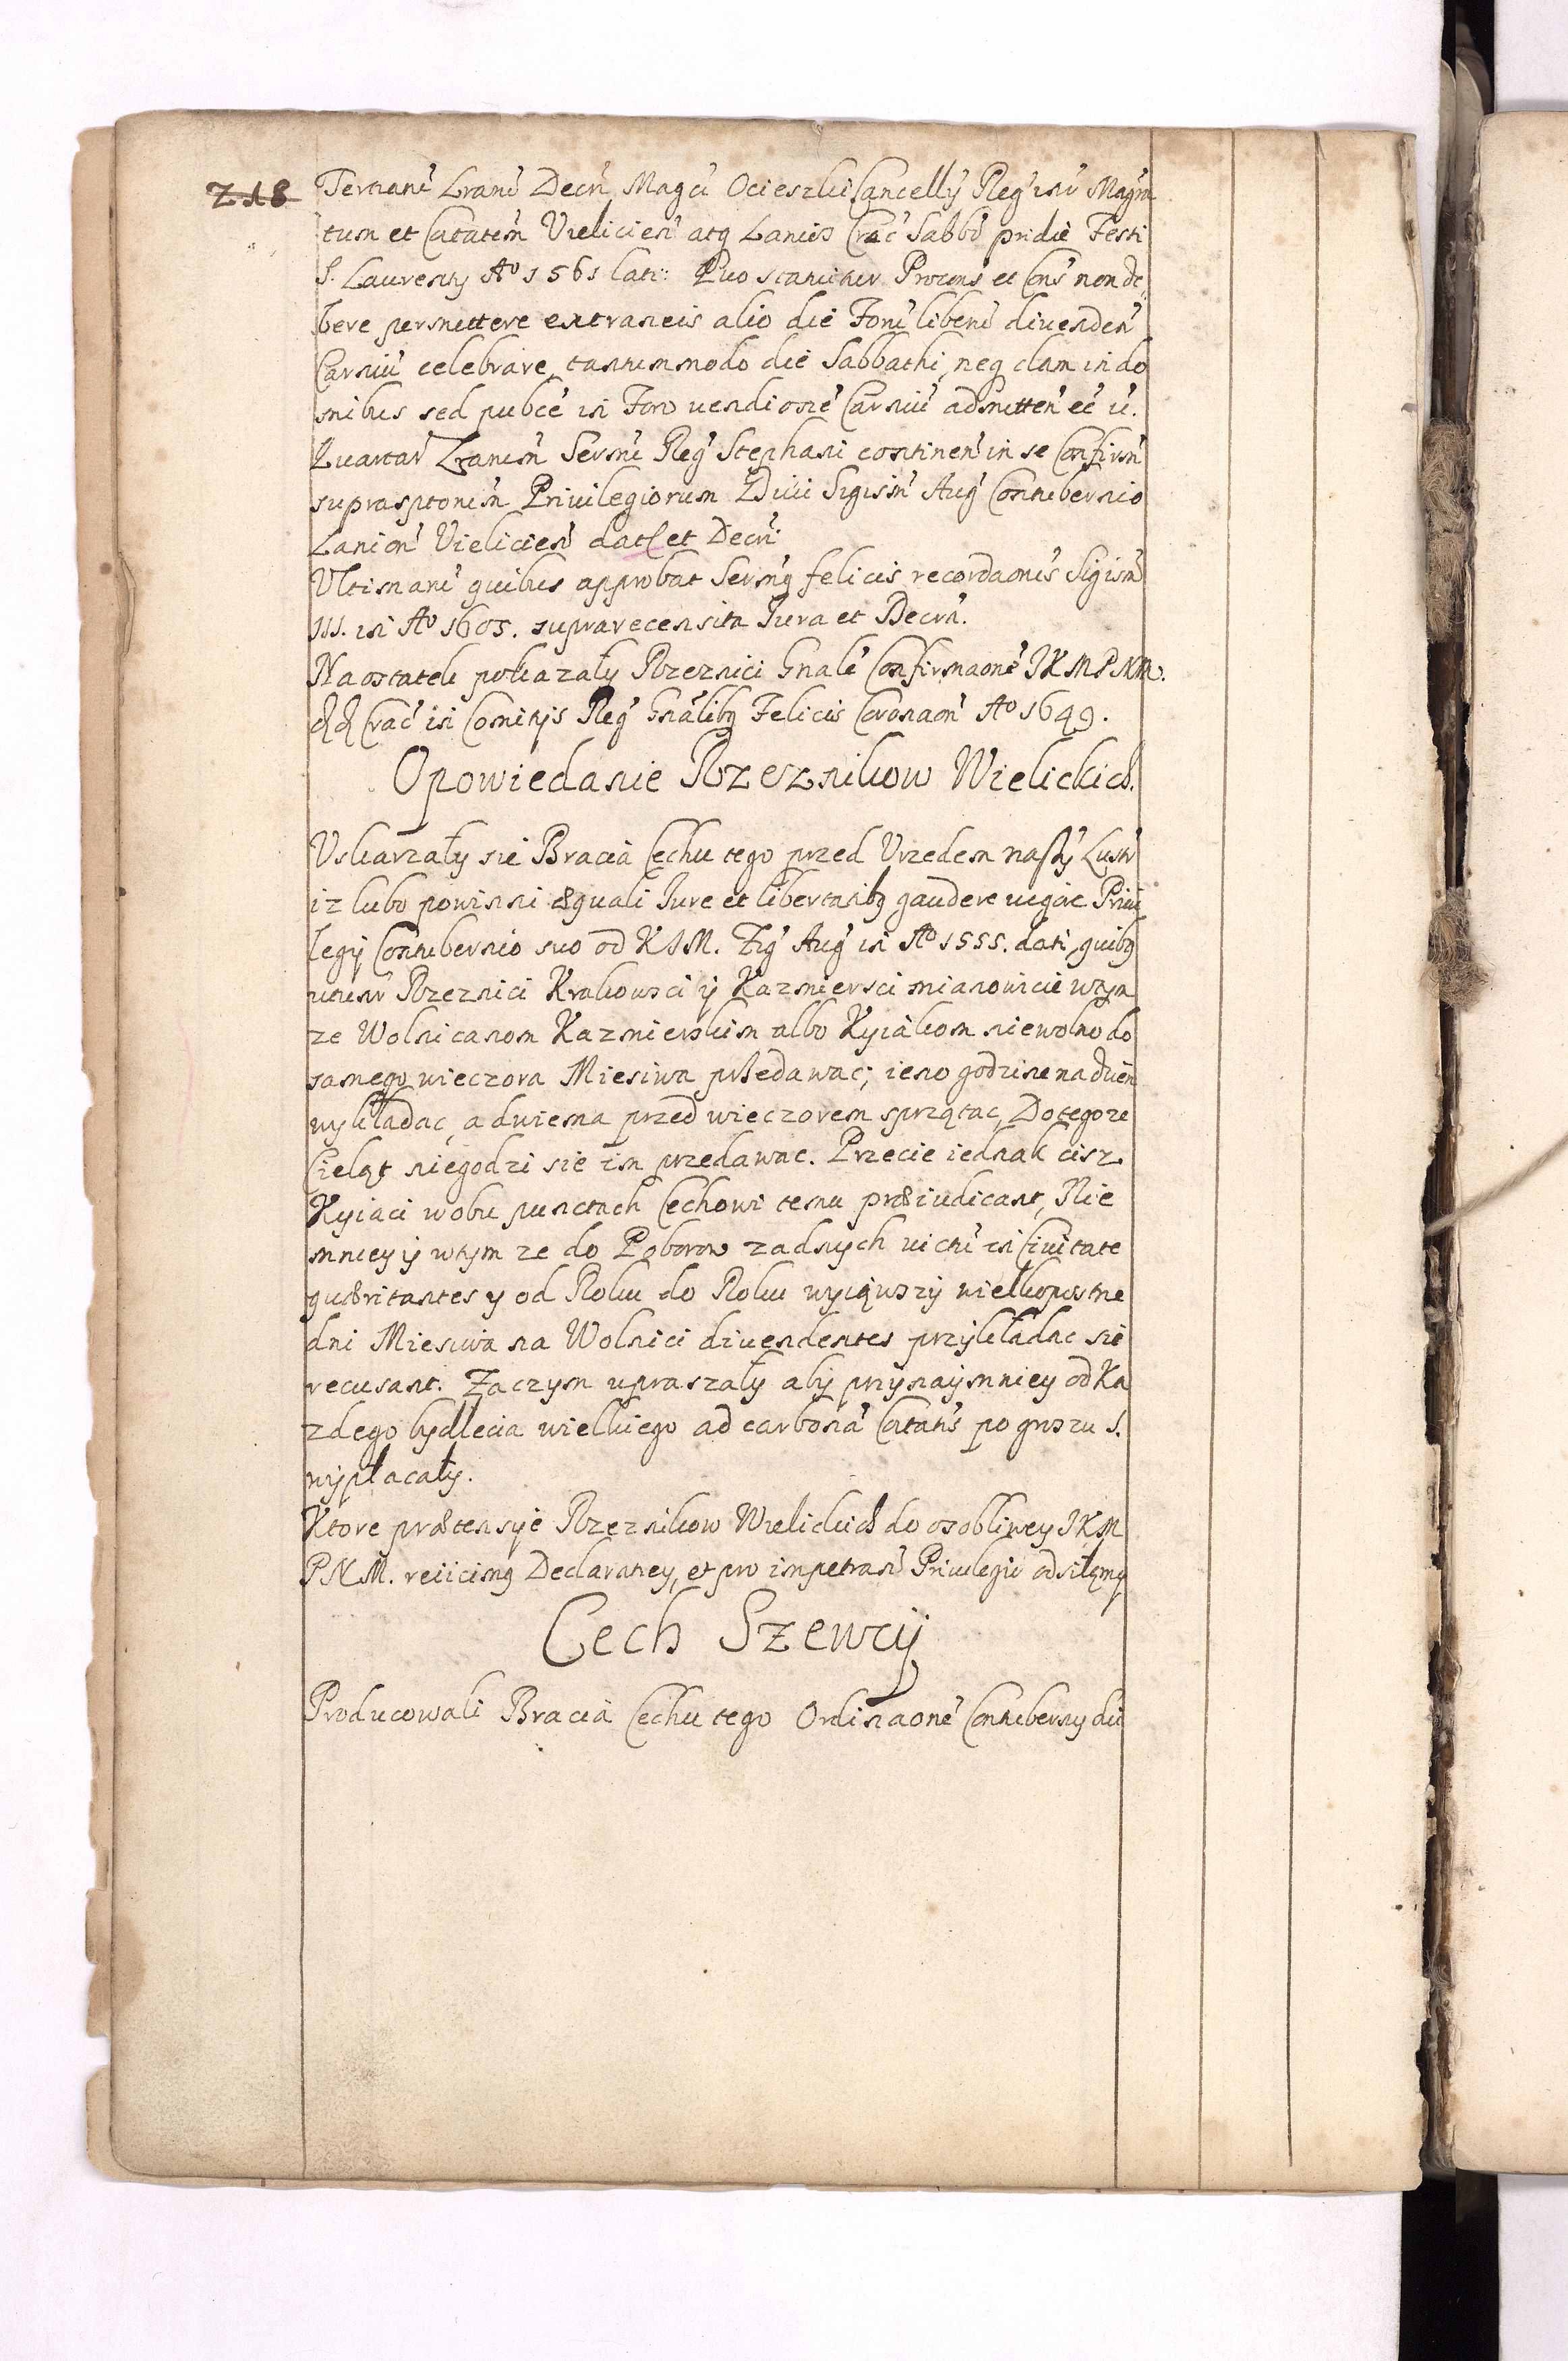 218
Tertiaru Lraru Decri Magci Ocieski Cancellÿ Regni inr Magra
tum et Catatem Vielicien atq Lanios Crac Sabbo pridie Festi
S. Laurentÿ Ao 1561 lati: Quo scatuitur Procons et Cons non de
bere permittere extraneis alio die Fori liberi divenden
Carniu celebrare, tantummodo die Sabbathi, neq clam in do
mibus sed pubce in Foro uendione Carniu admitten ee u.
Quartar Lrarum Sermi Reg Stephani continen in se Confirm
suprasptorum Privilegiorum Divi Sigism Aug Contubernio
Lanion Vielicien dat et Decri.
Vltimaru quibus approbat Sermq felicis recordaonis Sigism
III. in Ao 1605. suprarecensita Iura et Decra.
Na ostatek pokazały Rzeznici Gnale Confirmaone JKMPNM.
dd Crac in Comitÿs Reg Gnalibq Felicis Coronaon Ao 1649.
Opowiedanie Rzeznikow Wielickich.
Vskarzały sie Bracia Cechu tego przed Vrzedem naszÿ Lustr
iz lubo powinni æquali Iure et libertatibq gaudere uigore Priui
legÿ Contubernio suo od KJM. Zig Aug in Ao 1555. dati, quibq
utunr Rzeznici Krakowsci ÿ Kazmiersci mianowicie wtÿm
ze Wolnicanom Kazmierskim albo Kyiakom niewolno do
samego wieczora Miesiwa przedawac; ieno godzine na dzien
wykładac, a dwiema przed wieczorem sprzątac, Do tego ze
Cieląt niegodzi sie im przedawac. Przecie iednak cisz
Kyiaci wobu punctach Cechowi temu præiudicant, Nie
mniey ÿ wtym ze do Poborow zadnych uictu in Ciuitate
quæritantes y od Roku do Roku wyiąwszÿ wielkopostne
dni Miesiwa na Wolnici diuendentes przÿkładac sie
recusant. Zaczym upraszałÿ abÿ przynaÿmniey od Ka
zdego bydlecia wielkiego ad carbona Catatis po groszu 1.
wÿpłacałÿ.
Ktore prætensyie Rzeznikow Wielickich do osobliwey JKM
PNM. reiicimq Declaratiey, et pro impetran Priuilegio odsiłamy
Cech Szewcÿ
Producowali Bracia Cechu tego Ordinaone Contubernÿ dui